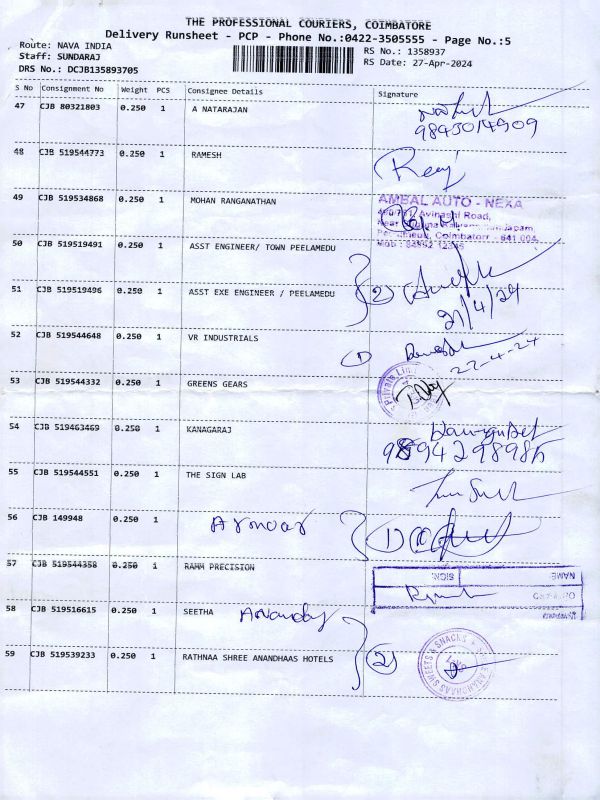 THE PROFESSIONAL COURIERS, COIMBATORE
Delivery Runsheet - PCP - Phone No.:0422-3505555 - Page No.:5
Route: NAVA INDIA
Staff: SUNDARAJ
DRS No.: DCJB135893705
RS No.: 1358937
RS Date: 27-Apr-2024
S No Consignment No Weight PCS Consignee Details Signature
47 CJB 80321803 0.250 1 A NATARAJAN
9843014909
48 CJB 519544773 0.250 1 RAMESH
49 CJB 519534868 0.250 1 MOHAN RANGANATHAN
AMBAL AUTO - NEXA
Avinashi Road,
Coimbatore - 641 004.
50 CJB 519519491 0.250 1 ASST ENGINEER/ TOWN PEELAMEDU
51 CJB 519519496 0.250 1 ASST EXE ENGINEER / PEELAMEDU
2
27/4/24
52 CJB 519544648 0.250 1 VR INDUSTRIALS
1
27-4-24
53 CJB 519544332 0.250 1 GREENS GEARS
Private Limi
54 CJB 519463469 0.250 1 KANAGARAJ
55 CJB 519544551 0.250 1 THE SIGN LAB
56 CJB 149948 0.250 1
57 CJB 519544358 0.250 1 RAMM PRECISION
NAME:
SIGN:
58 CJB 519516615 0.250 1 SEETHA
59 CJB 519539233 0.250 1 RATHNAA SHREE ANANDHAAS HOTELS
2
ANANDHAAS SWEETS & SNACKS